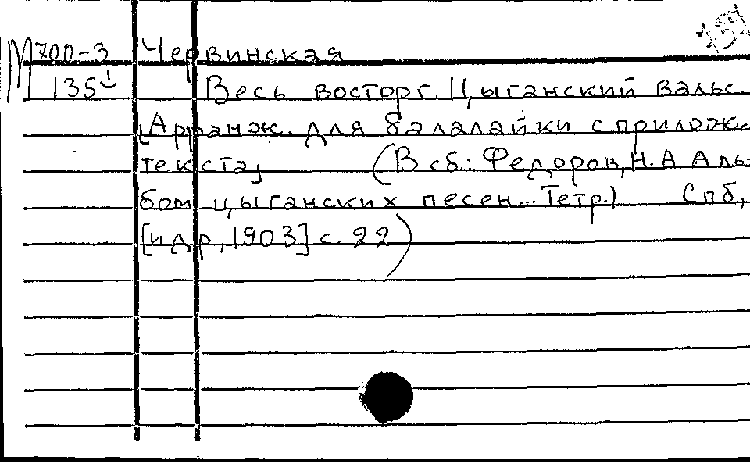 М 700-3 Червинская
135 Весь восторг. Цыганский вальс.
[Арранж. для балалайки с прилож.
текста] (В сб: Федоров, Н.А Аль-
бом цыганских песен. Тетр.1 Спб,
[ндр, 1903] с. 22)